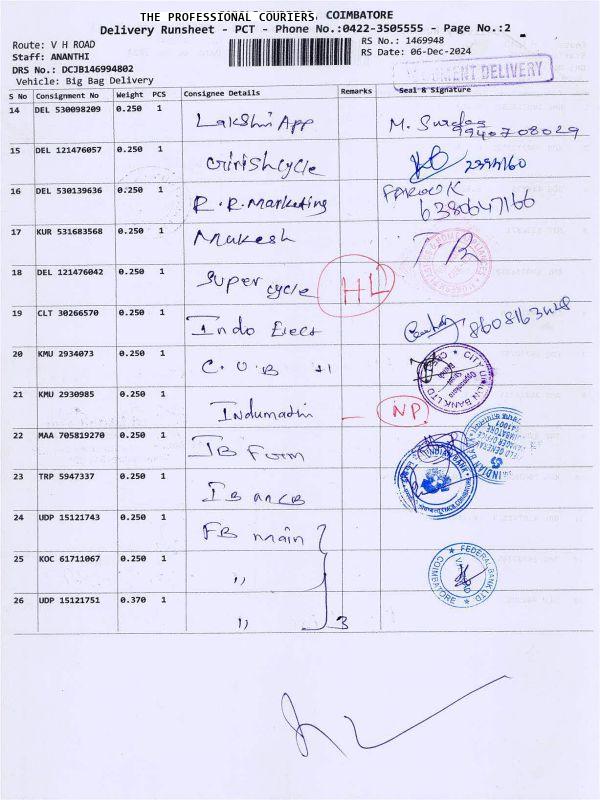 THE PROFESSIONAL COURIERS, COIMBATORE
Delivery Runsheet - PCT - Phone No.:0422-3505555 - Page No.:2
Route: V H ROAD
RS No.: 1469948
Staff: ANANTHI
RS Date: 06-Dec-2024
DRS No.: DCJB146994802
Vehicle: Big Bag Delivery
DELIVERY
S No Consignment No Weight PCS Consignee Details Remarks Seal & Signature
14 DEL 530098209 0.250 1 Lakshmi App M.
9940708029
15 DEL 121476057 0.250 1 Girish cycle
16 DEL 530139636 0.250 1 R.R. Marketing FAROOK
6380647166
17 KUR 531683568 0.250 1 Mukesh
18 DEL 121476042 0.250 1 Super cycle HL
19 CLT 30266570 0.250 1 Indo Elect
20 KMU 2934073 0.250 1 C.U.B
CITY UNION BANK LTD
21 KMU 2930985 0.250 1 Indumathi — NP
22 MAA 705819270 0.250 1 IB
INDIAN BANK
23 TRP 5947337 0.250 1 IB
24 UDP 15121743 0.250 1 FB main
25 KOC 61711067 0.250 1 ,,
FEDERAL BANK LTD
COIMBATORE
26 UDP 15121751 0.370 1 ,, 3